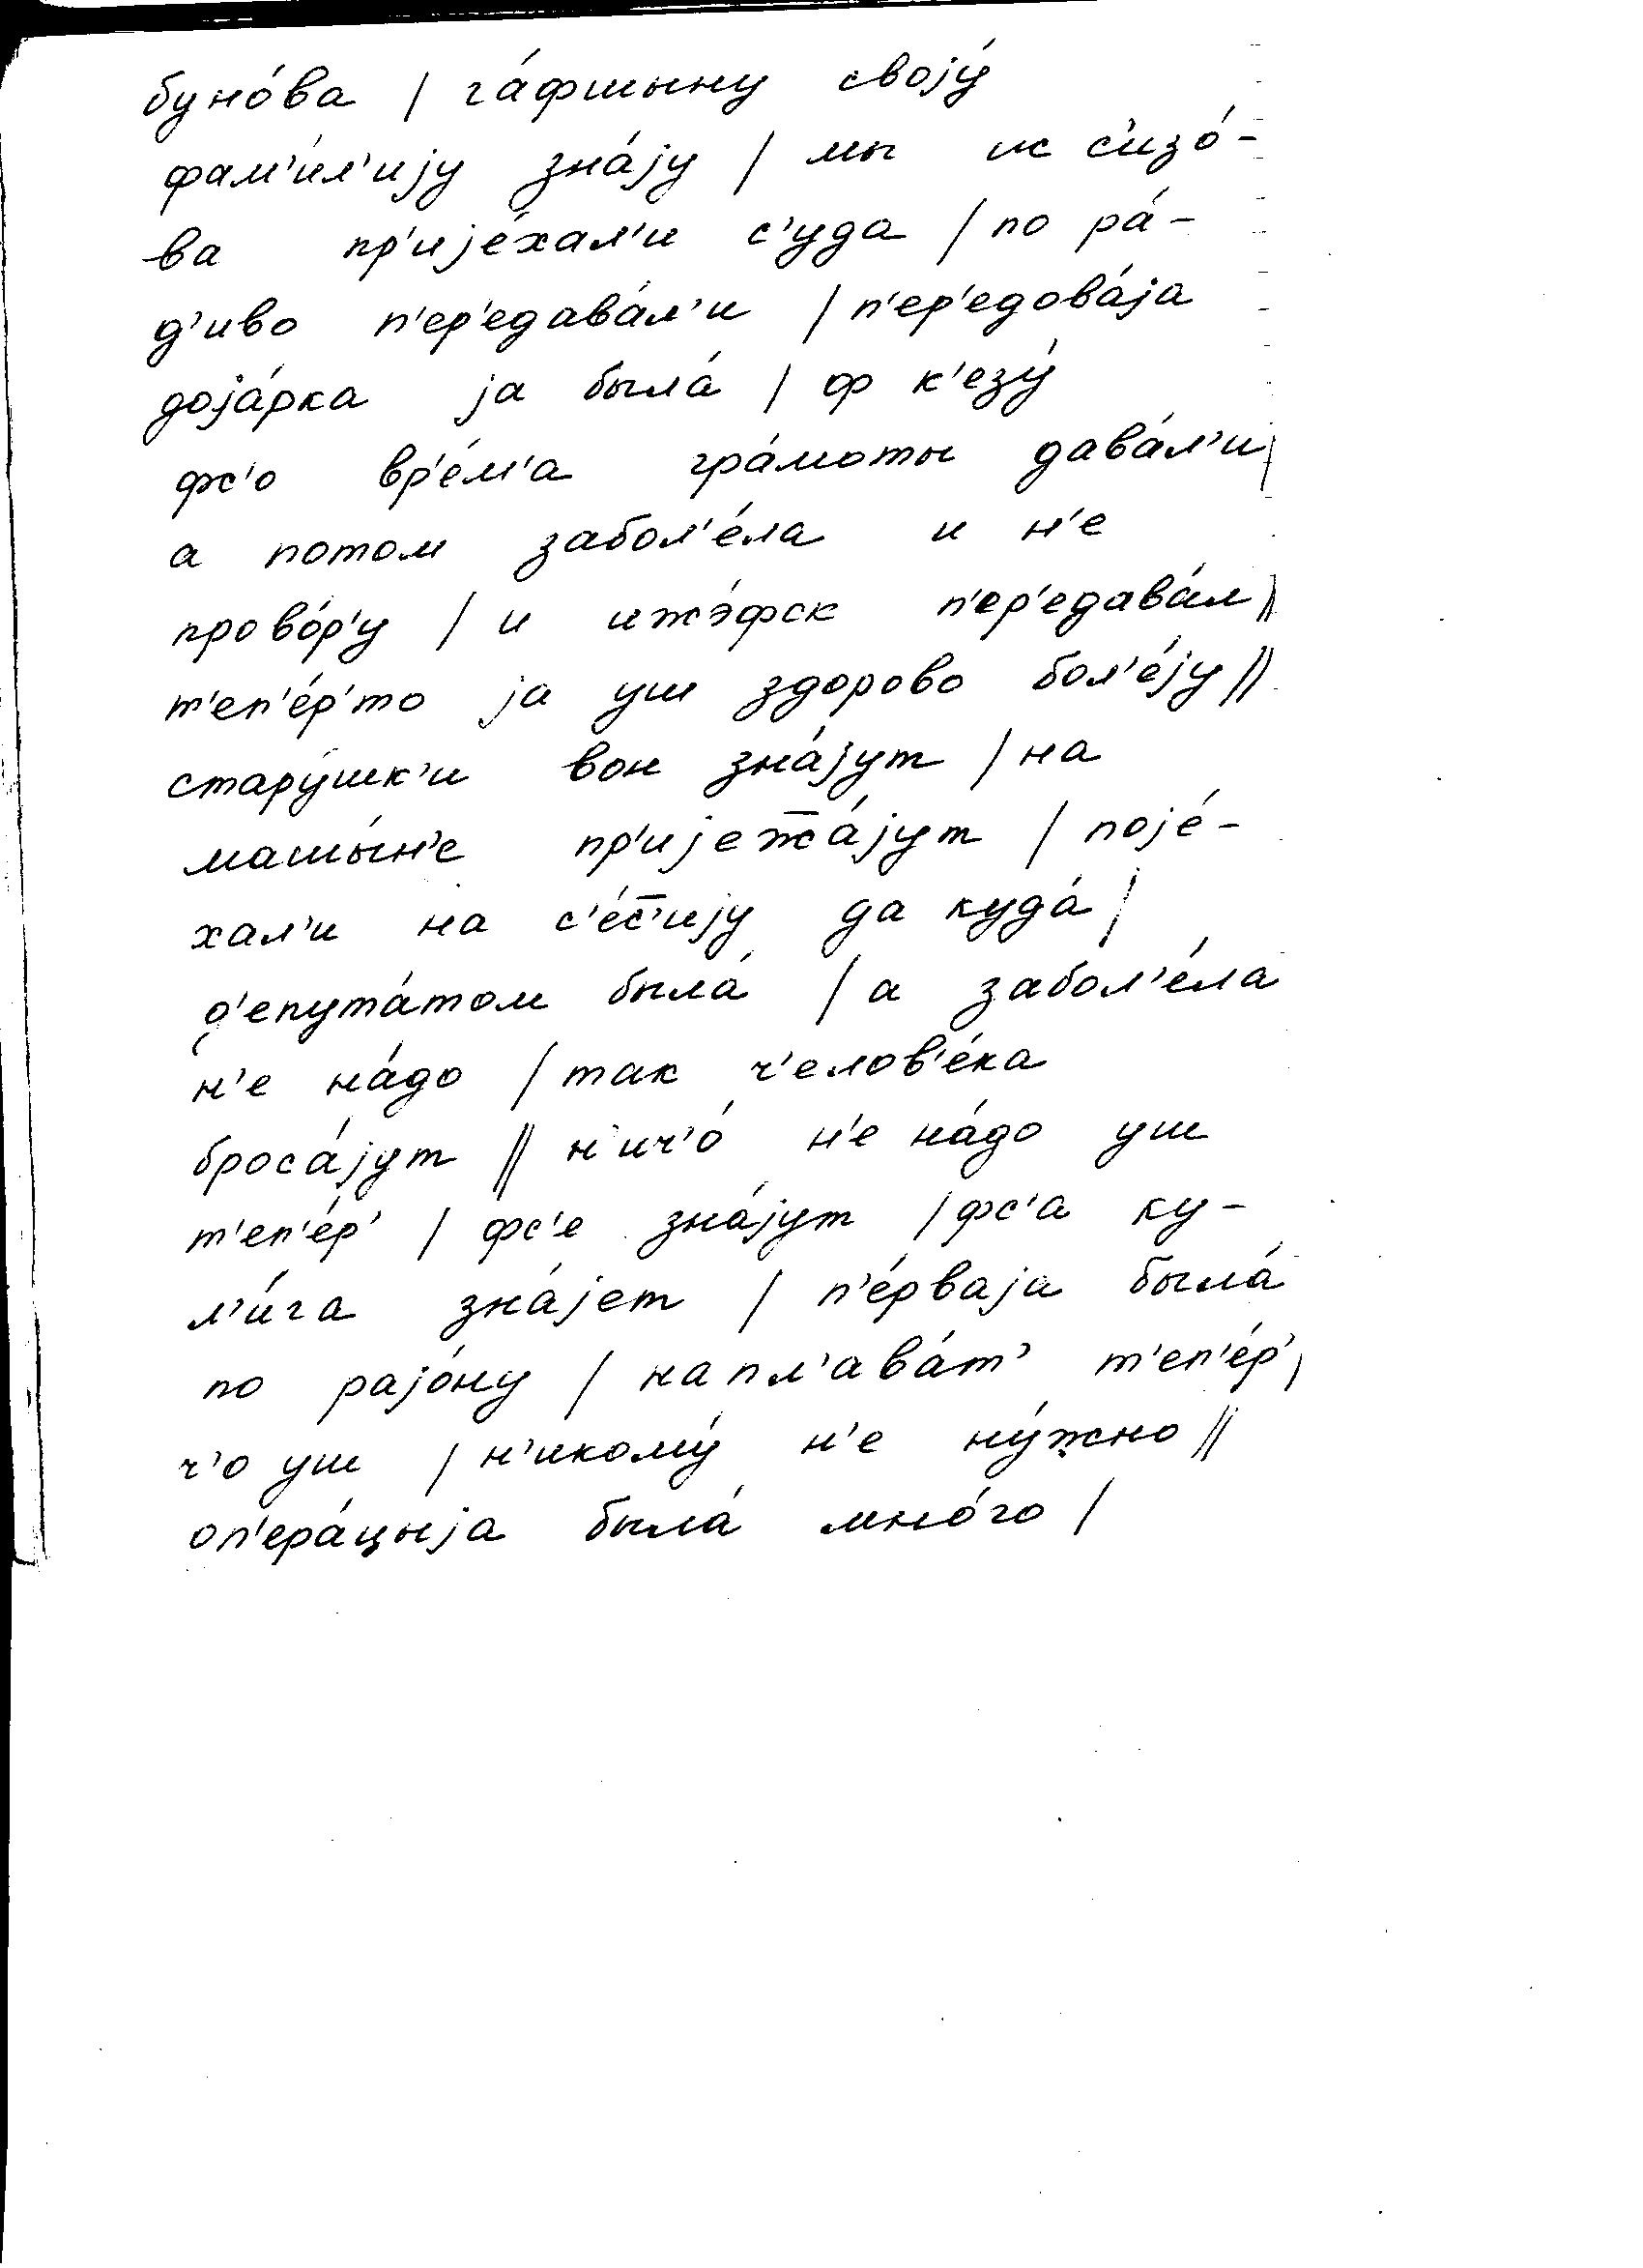 буно́ва | га́фшыну своjу́
фам'и́л'иjу зна́jу | мы ис с'изо́-
ва пр'иjе́хал'и с'уда | по ра́-
д'иво п'ер'едава́л'и | п'ер'едова́jа
доjа́рка jа была́ | ф к'езу́
фс'о вр'е́м'а гра́моты дава́л'и |
а потом забол'е́ла и н'е
прово́р'у | и ижэ́фск п'ер'едава́л ||
т'еп'е́р'то jа уш здорово бол'е́jу ||
стару́шк'и вон зна́jут | на
машы́н'е пр'иjеж̅а́jут | поjе́-
хал'и на с'е́с̅'иjу да куда́ |
д'епута́том была́ | а забол'е́ла
н'е на́до | так ч'елов'е́ка
броса́jут || н'ич'о́ н'е на́до уш
т'еп'е́р' | фс'е зна́jут | фс'а ку-
л'и́га зна́jет | п'е́рваjа была́
по раjо́ну | напл'ава́т' т'еп'е́р' |
ч'о уш | н'икому́ н'е ну́жно ||
оп'ера́цыjа была́ мно́го |